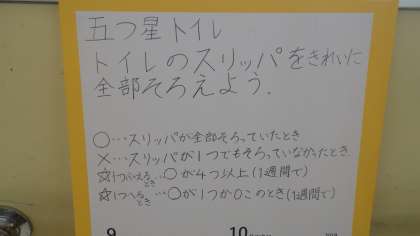 五つ星トイレ
トイレのスリッパをきれいに
全部そろえよう.
○…スリッパが全部そろっていたとき
×…スリッパが1つでもそろっていなかったとき.
☆1つふえるとき…○が4つ以上(1週間で)
☆1つへるとき…○が1つか0このとき(1週間で)
9
10